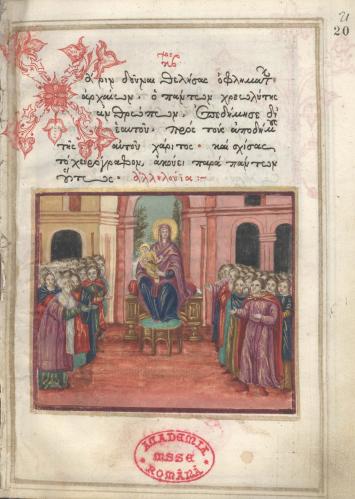 21
20
Χάριν δοῦναι θελήσας ὀφλημάτων
ἀρχαίων· ὁ πάντων χρεωλύτης
ἀνθρώπων· ἐπεδήμησε δι'
ἑαυτοῦ· πρὸς τοὺς ἀποδήμους
τῆς αὐτοῦ χάριτος· καὶ σχίσας
τὸ χειρόγραφον, ἀκούει παρὰ πάντων
οὕτως· ἀλληλούια:~
ACADEMIA
MSSE
ROMÂNĂ